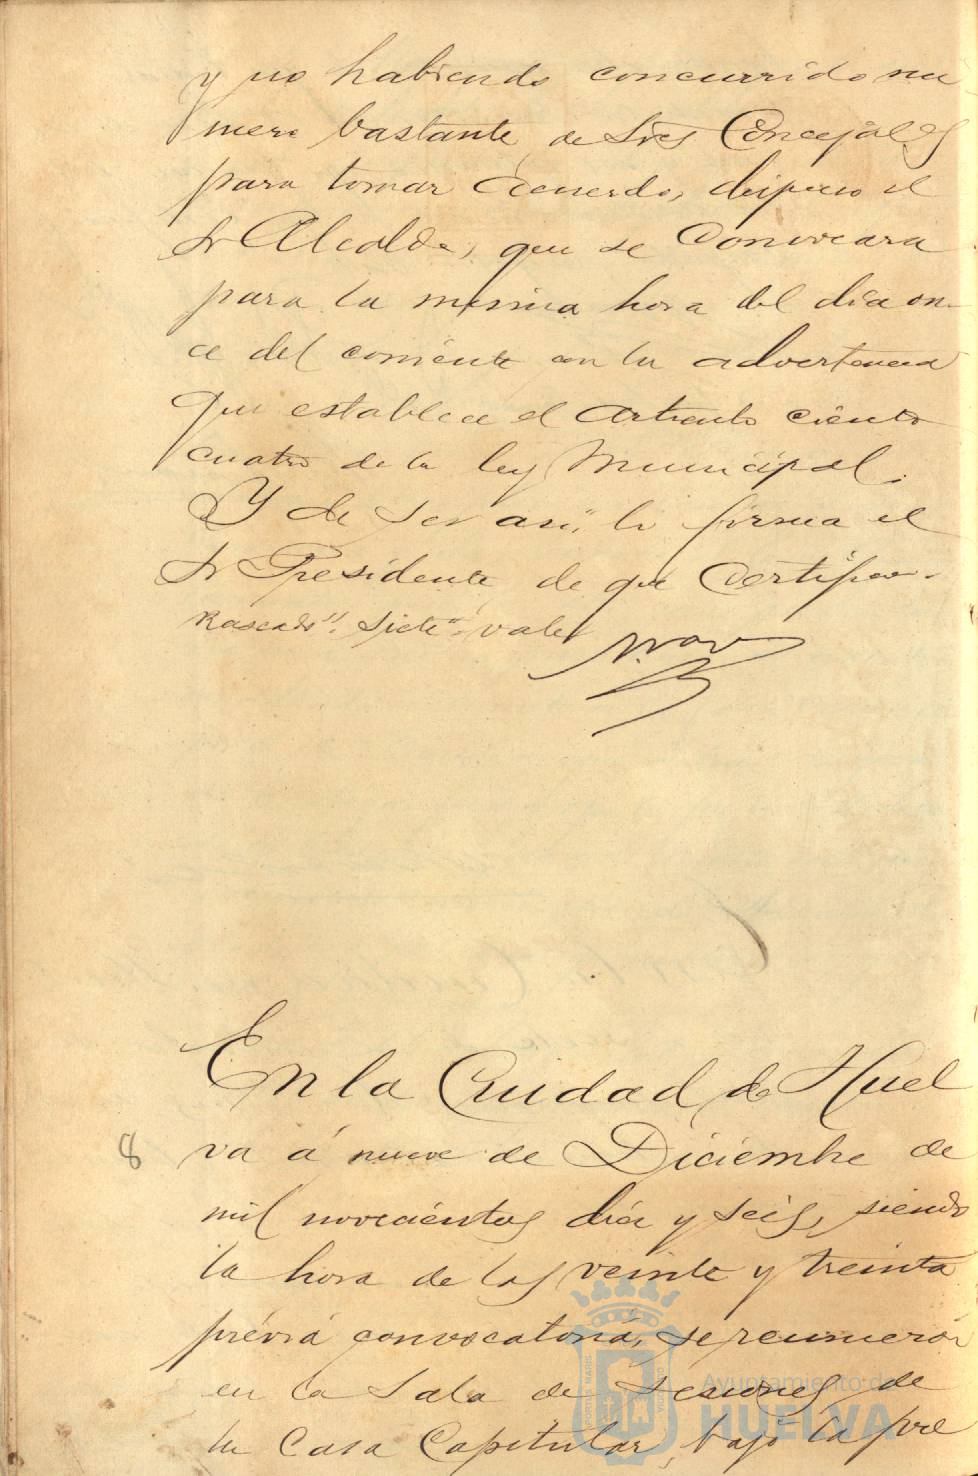 y no habiendo concurrido nu
mero bastante de Sres Concejales
para tomar acuerdo, dispuso el
Sr Alcalde, que se convocara
para la misma hora del día on-
ce del corriente con la advertencia
que establece el artículo ciento
cuatro de la ley Municipal.
Y de ser así, lo firma el
Sr Presidente de que certifico.-
Rascado". Siete". vale
En la Ciudad de Huel
8
va á nueve de Diciembre de
mil novecientos diez y seis, siendo
la hora de las veinte y treinta
prévia convocatoria, se reunieron
en la Sala de Sesiones de
la Casa Capitular, bajo la pre
Ayuntamiento de
HUELVA